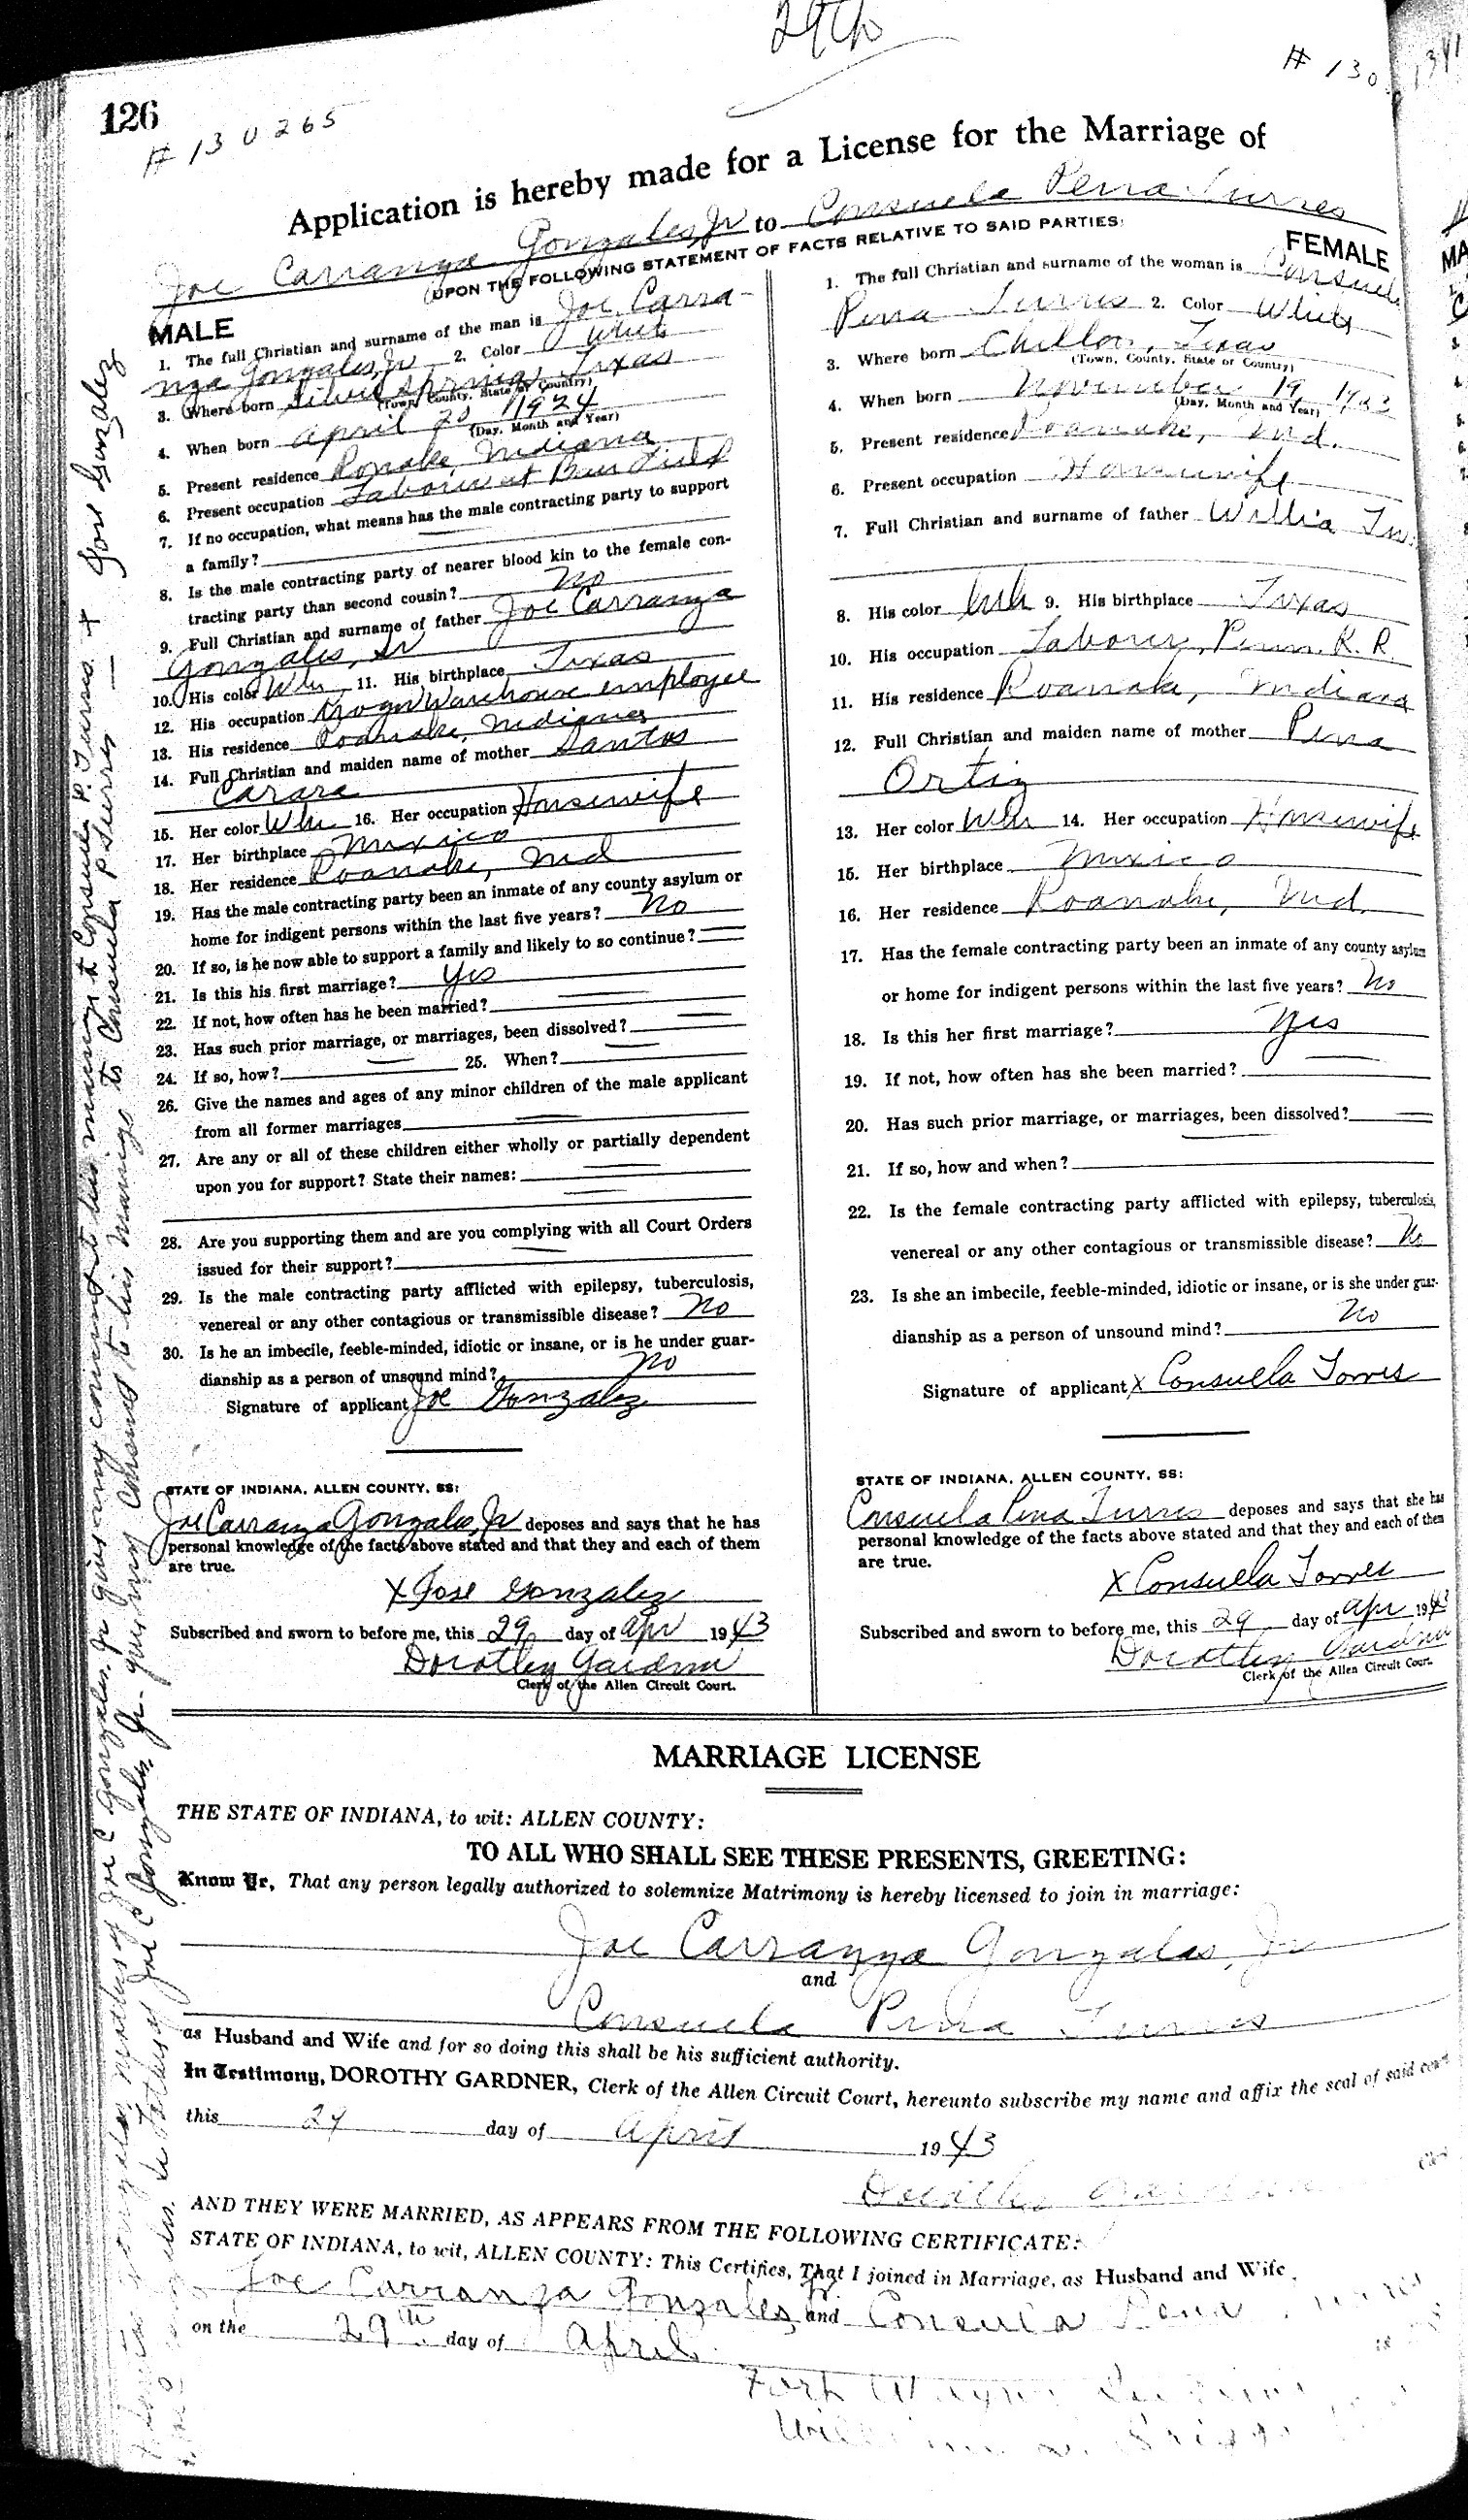 29th
# 130
126
# 130265
Application is hereby made for a License for the Marriage of
Joe Carranza Gonzales, Jr to Consuela Pena Turres
UPON THE FOLLOWING STATEMENT OF FACTS RELATIVE TO SAID PARTIES:
MALE
1. The full Christian and surname of the man is Joe Carra-
nza Gonzales, Jr 2. Color White
3. Where born Silver Springs, Texas
(Town, County, State or Country)
4. When born April 20 1924
(Day, Month and Year)
5. Present residence Ronake, Indiana
6. Present occupation Laborer at Baer Field
7. If no occupation, what means has the male contracting party to support
a family?
8. Is the male contracting party of nearer blood kin to the female con-
tracting party than second cousin? No
9. Full Christian and surname of father Joe Carranza
Gonzales, Sr
10. His color Whi 11. His birthplace Texas
12. His occupation Kroger Warehouse employee
13. His residence Roanoke, Indiana
14. Full Christian and maiden name of mother Santos
Carara
15. Her color Whi 16. Her occupation Housewife
17. Her birthplace Mexico
18. Her residence Roanoke, Ind
19. Has the male contracting party been an inmate of any county asylum or
home for indigent persons within the last five years? No
20. If so, is he now able to support a family and likely to so continue?
21. Is this his first marriage? Yes
22. If not, how often has he been married?
23. Has such prior marriage, or marriages, been dissolved?
24. If so, how? 25. When?
26. Give the names and ages of any minor children of the male applicant
from all former marriages
27. Are any or all of these children either wholly or partially dependent
upon you for support? State their names:
28. Are you supporting them and are you complying with all Court Orders
issued for their support?
29. Is the male contracting party afflicted with epilepsy, tuberculosis,
venereal or any other contagious or transmissible disease? No
30. Is he an imbecile, feeble-minded, idiotic or insane, or is he under guar-
dianship as a person of unsound mind? No
Signature of applicant Joe Gonzalez
STATE OF INDIANA, ALLEN COUNTY, SS:
Joe Carranza Gonzales, Jr deposes and says that he has
personal knowledge of the facts above stated and that they and each of them
are true.
X Jose Gonzalez
Subscribed and sworn to before me, this 29 day of Apr 1943
Dorothy Gardner
Clerk of the Allen Circuit Court.
FEMALE
1. The full Christian and surname of the woman is Consuela
Pena Turres 2. Color White
3. Where born Chillon, Texas
(Town, County, State or Country)
4. When born November 19, 1923
(Day, Month and Year)
5. Present residence Roanoke, Ind.
6. Present occupation Housewife
7. Full Christian and surname of father Willia
8. His color Whi 9. His birthplace Texas
10. His occupation Laborer, Penn. R. R.
11. His residence Roanoke, Indiana
12. Full Christian and maiden name of mother Pena
Ortiz
13. Her color Whi 14. Her occupation Housewife
15. Her birthplace Mexico
16. Her residence Roanoke, Ind.
17. Has the female contracting party been an inmate of any county asylum
or home for indigent persons within the last five years? No
18. Is this her first marriage? Yes
19. If not, how often has she been married?
20. Has such prior marriage, or marriages, been dissolved?
21. If so, how and when?
22. Is the female contracting party afflicted with epilepsy, tuberculosis,
venereal or any other contagious or transmissible disease? No
23. Is she an imbecile, feeble-minded, idiotic or insane, or is she under guar-
dianship as a person of unsound mind? No
Signature of applicant X Consuella Torres
STATE OF INDIANA, ALLEN COUNTY, SS:
Consuela Pena Turres deposes and says that she has
personal knowledge of the facts above stated and that they and each of them
are true.
X Consuella Torres
Subscribed and sworn to before me, this 29 day of Apr 1943
Dorothy Gardner
Clerk of the Allen Circuit Court.
Joe C Gonzales, Jr giving my consent to his marriage to Consuela P. Turres. +
Joe C Gonzales, Jr. giving my consent to his marriage to Consuela P Turres — Jose Gonzalez
MARRIAGE LICENSE
THE STATE OF INDIANA, to wit: ALLEN COUNTY:
TO ALL WHO SHALL SEE THESE PRESENTS, GREETING:
Know Ye, That any person legally authorized to solemnize Matrimony is hereby licensed to join in marriage:
Joe Carranza Gonzales, Jr
and
Consuela Pena Turres
as Husband and Wife and for so doing this shall be his sufficient authority.
In Testimony, DOROTHY GARDNER, Clerk of the Allen Circuit Court, hereunto subscribe my name and affix the seal of said court
this 29 day of April 1943
Dorothy Gardner
AND THEY WERE MARRIED, AS APPEARS FROM THE FOLLOWING CERTIFICATE:
STATE OF INDIANA, to wit, ALLEN COUNTY: This Certifies, That I joined in Marriage, as Husband and Wife
Joe Carranza Gonzales, Jr and Consuela Pena
on the 29th day of April
Fort Wayne